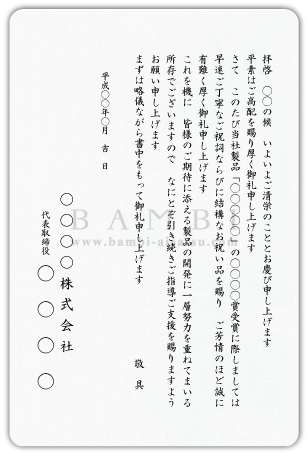 拝啓　○○の候　いよいよご清栄のこととお慶び申し上げます
平素はご高配を賜り厚く御礼申し上げます
さて　このたび当社製品「○○○○○」の○○○○賞受賞に際しましては
早速ご丁寧なご祝詞ならびに結構なお祝い品を賜り　ご芳情のほど誠に
有難く厚く御礼申し上げます
これを機に　皆様のご期待に添える製品の開発に一層努力を重ねてまいる
所存でございますので　なにとぞ引き続きご指導ご支援を賜りますよう
お願い申し上げます
まずは略儀ながら書中をもって御礼申し上げます
敬具
平成○○年○月　吉　日
○○○○株式会社
代表取締役　○○○○
BAMBI